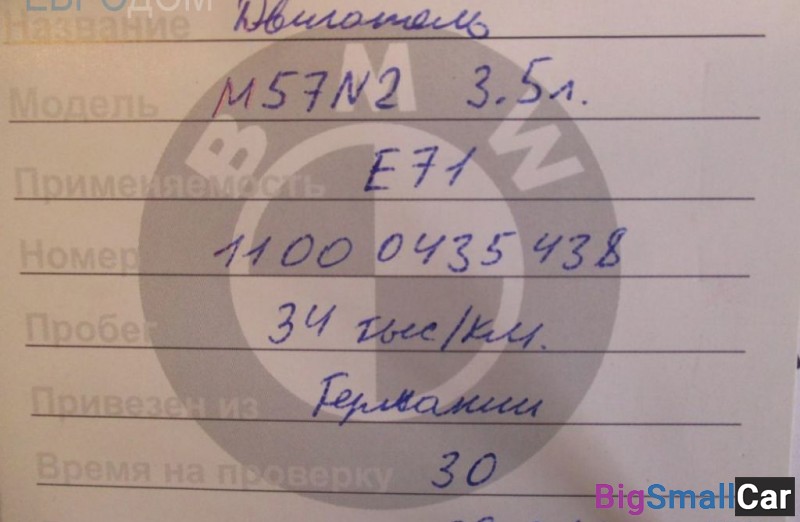 ЕВРОДОМ
Название Двигатель
Модель М57N2 3.5л.
BMW
Применяемость E71
Номер 1100 0435 438
Пробег 34 тыс/км.
Привезен из Германии
Время на проверку 30
BigSmallCar